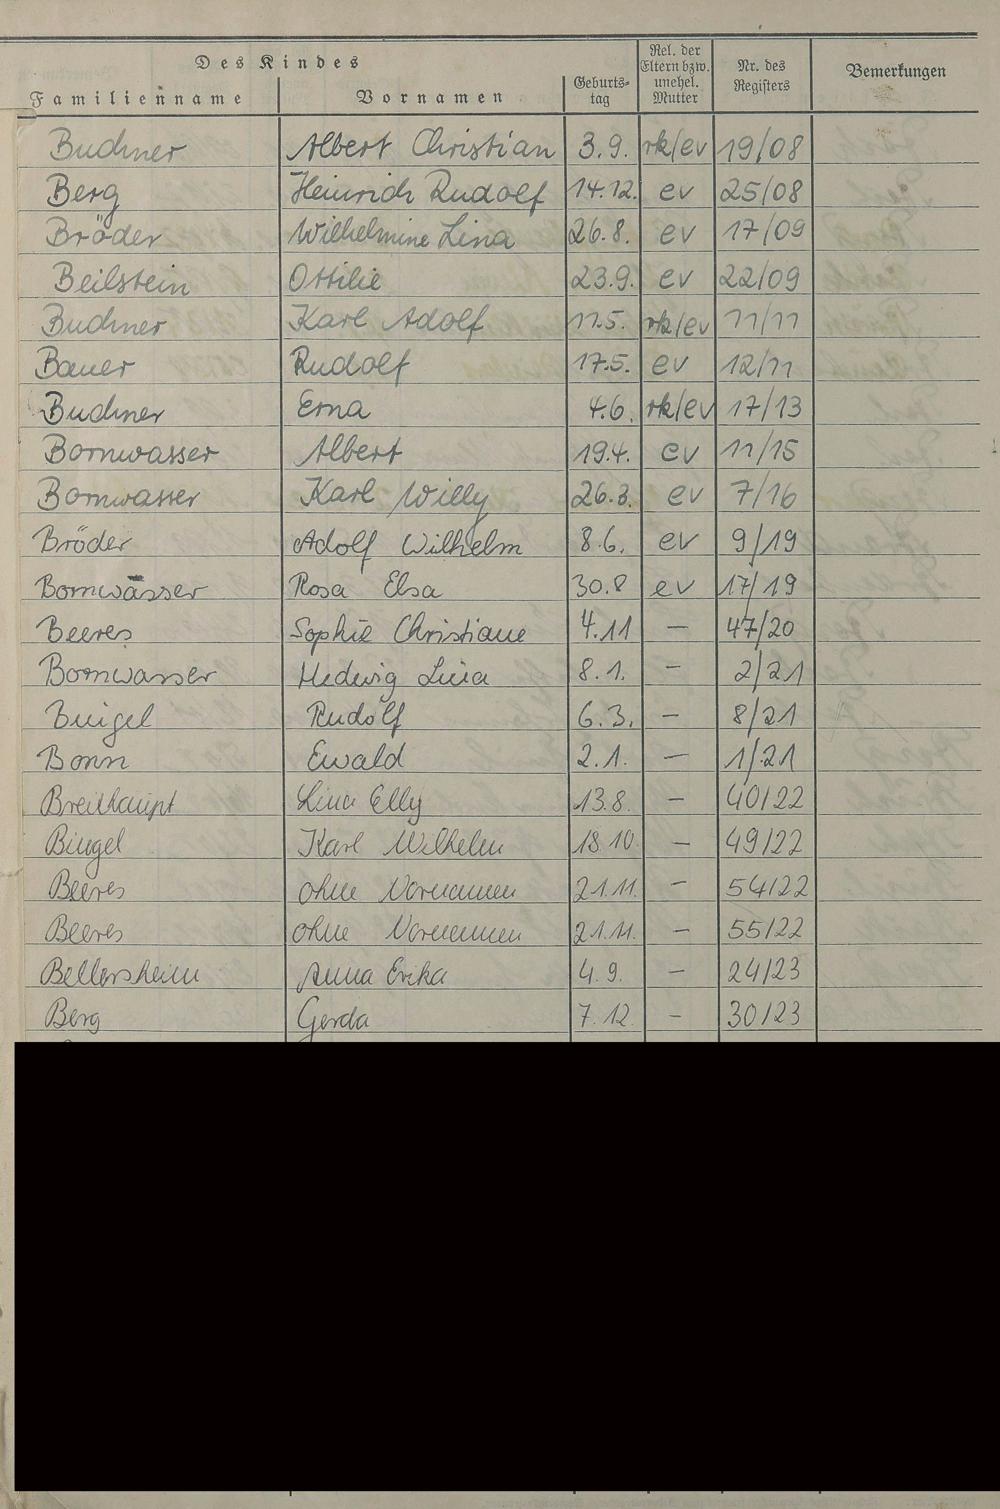 Des Kindes
Familienname Vornamen Geburts-tag Rel. der Eltern bzw. unehel. Mutter Nr. des Registers Bemerkungen
Buchner Albert Christian 3.9. rk/ev 19/08
Berg Heinrich Rudolf 14.12. ev 25/08
Bröder Wilhelmine Lina 26.8. ev 17/09
Beilstein Ottilie 23.9. ev 22/09
Buchner Karl Adolf 11.5. rk/ev 11/11
Bauer Rudolf 17.5. ev 12/11
Buchner Erna 4.6. rk/ev 17/13
Bornwasser Albert 19.4. ev 11/15
Bornwasser Karl Willy 26.3. ev 7/16
Bröder Adolf Wilhelm 8.6. ev 9/19
Bornwasser Rosa Elsa 30.8 ev 17/19
Beeres Sophie Christiane 4.11 — 47/20
Bornwasser Hedwig Lina 8.1. — 2/21
Bingel Rudolf 6.3. — 8/21
Bonn Ewald 2.1. — 1/21
Breithaupt Lina Elly 13.8. — 40/22
Bingel Karl Wilhelm 18.10. — 49/22
Beeres ohne Vornamen 21.11. — 54/22
Beeres ohne Vornamen 21.11. — 55/22
Bellersheim Anna Erika 4.9. — 24/23
Berg Gerda 7.12. — 30/23